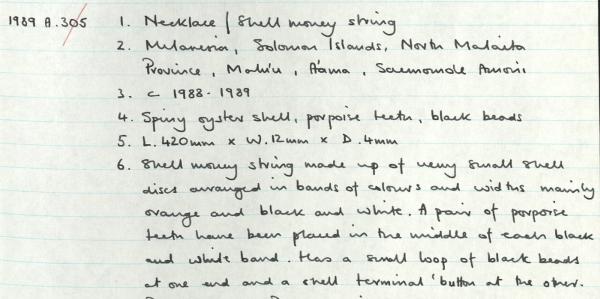 1989 A.305 1. Necklace / Shell money string
2. Melanesia, Solomon Islands, North Malaita
Province, Malu'u, A'ama,
3. c 1988-1989
4. Spiny oyster shell, porpoise teeth, black beads
5. L. 420mm x W. 12mm x D. 4mm
6. Shell money string made up of very small shell
discs arranged in bands of colours and widths mainly
orange and black and white. A pair of porpoise
teeth have been placed in the middle of each black
and white band. Has a small loop of black beads
at one end and a shell terminal 'button at the other.